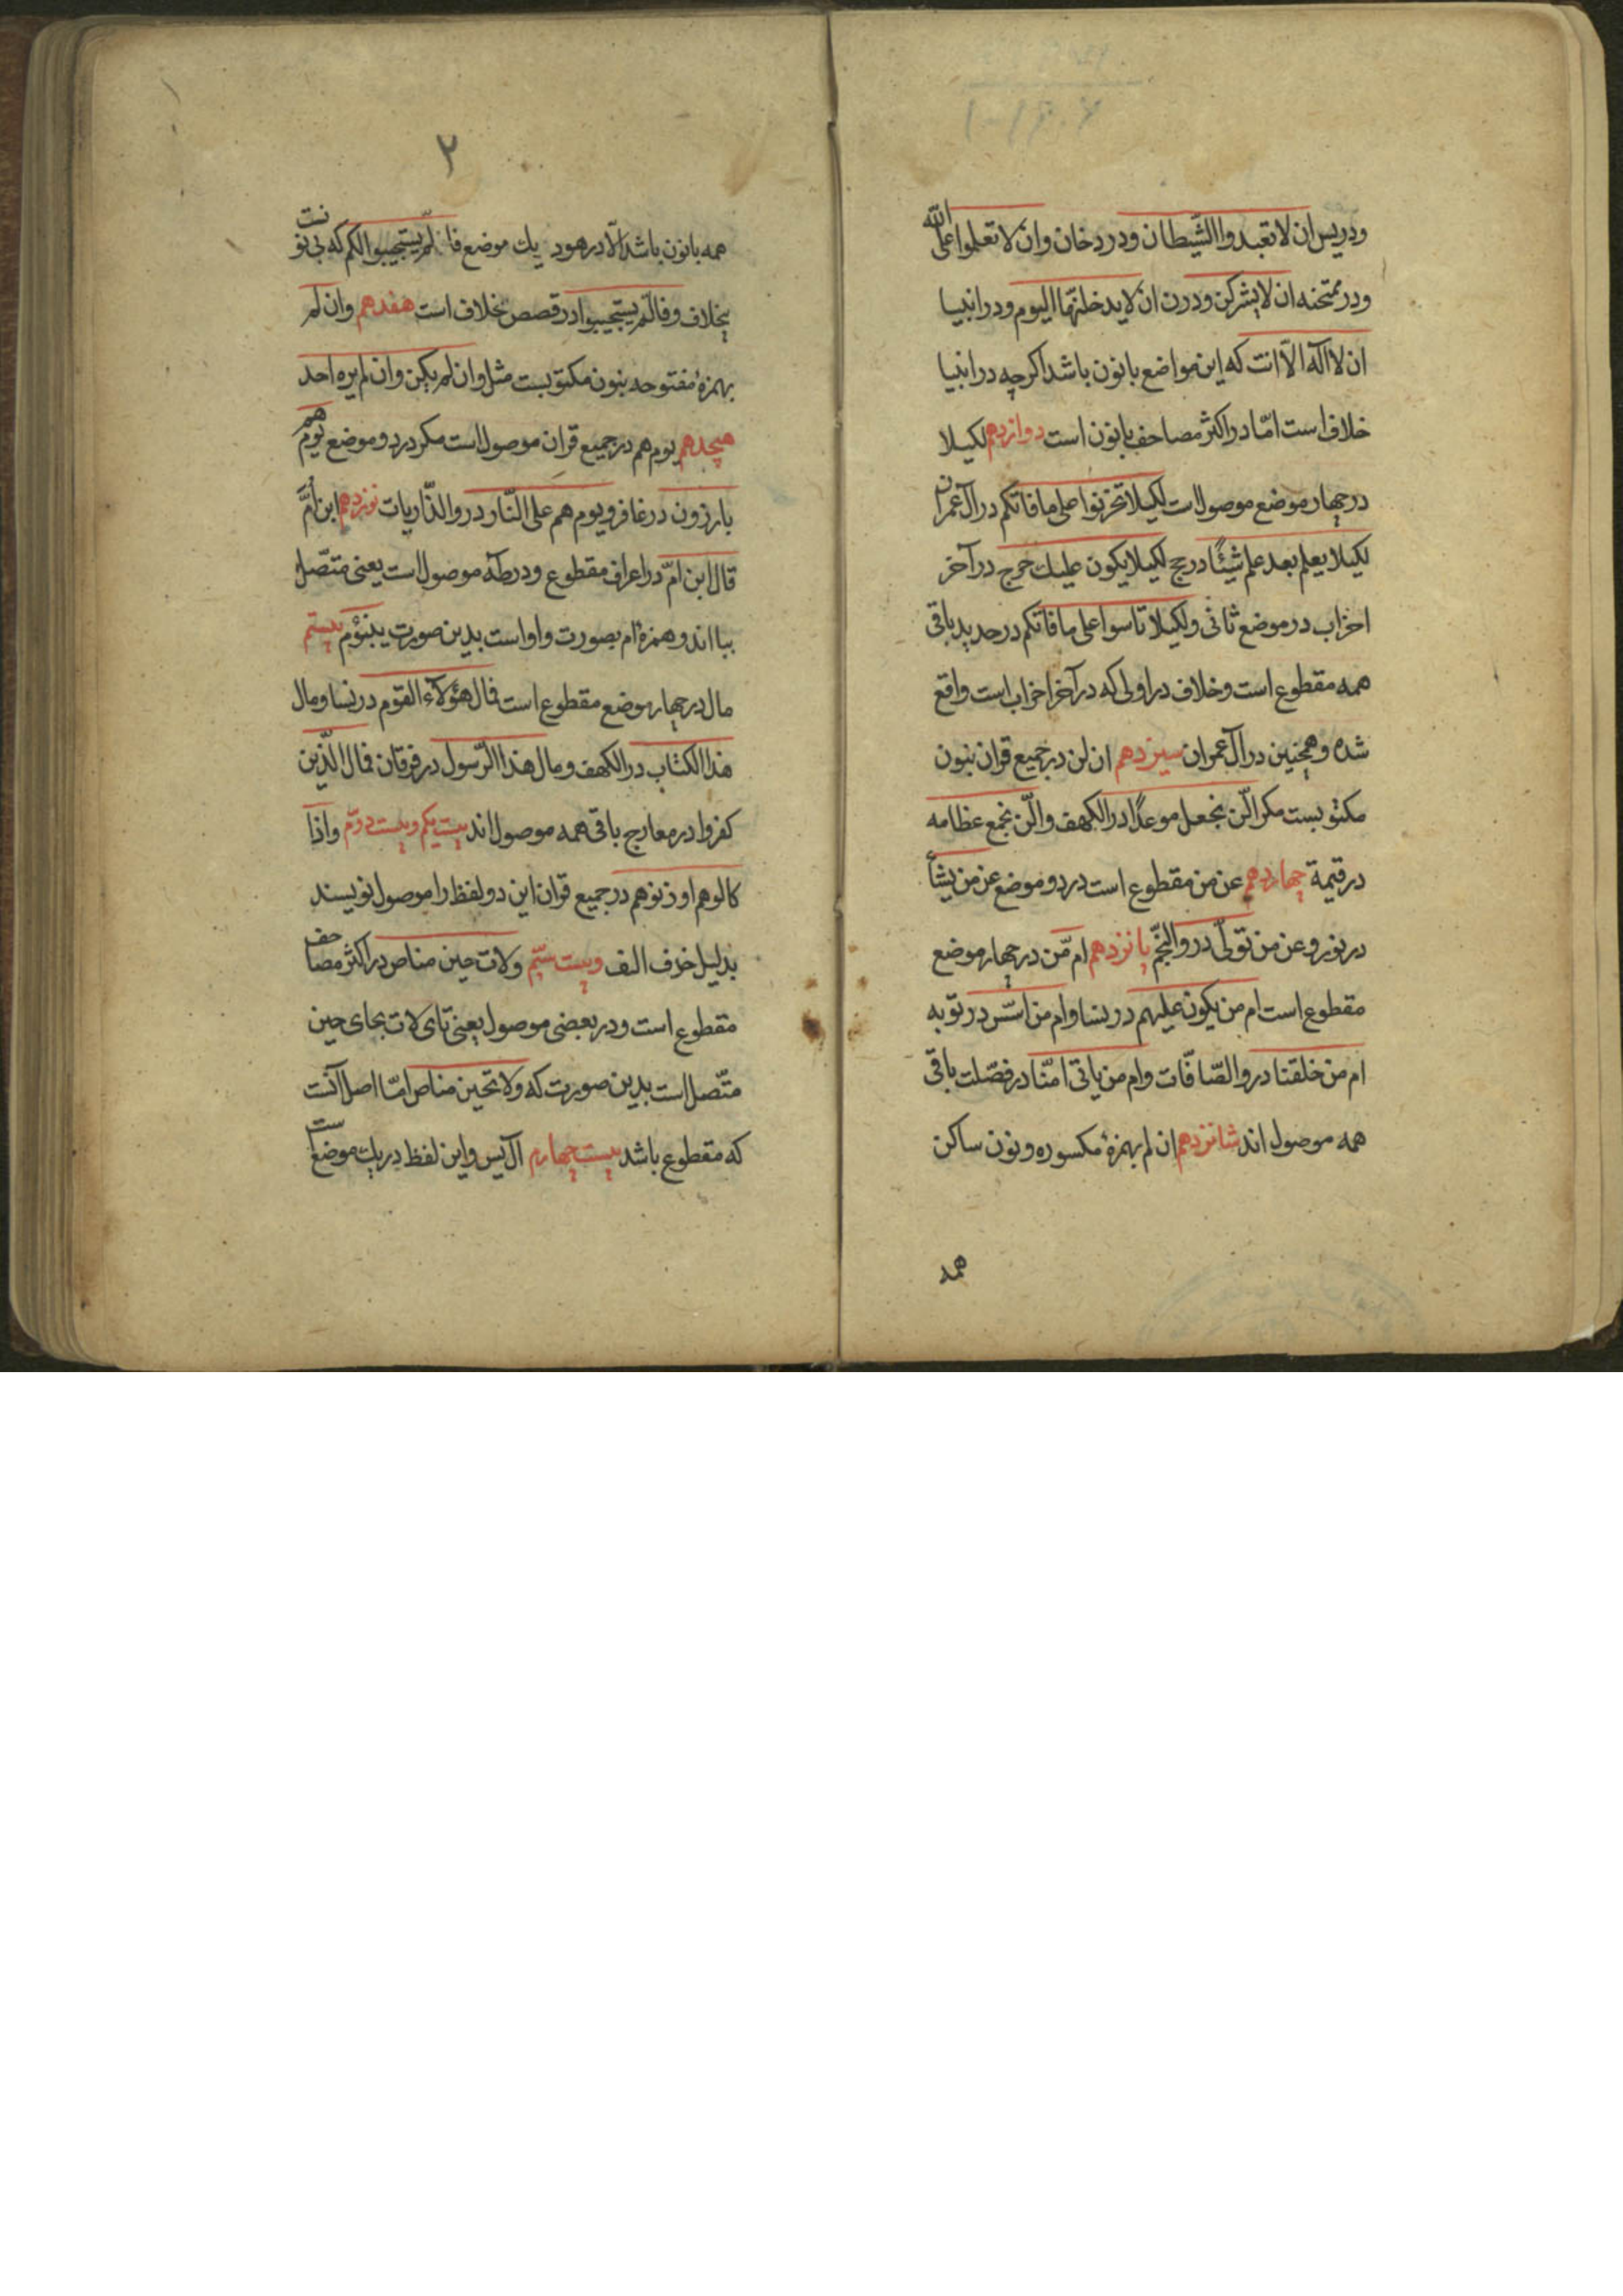 ودریس ان لا تعبدوا الشیطان ودر دخان وان لا تعلوا علی الله
ودر ممتحنه ان لا یشرکن ودرن ان لا یدخلنها الیوم ودر انبیا
ان لا اله الّا انت که این مواضع با نون باشد اکرچه در انبیا
خلاف است امّا در اکثر مصاحف با نون است دوازدهم لکیلا
در چهار موضع موصول است لکیلا تحزنوا علی ما فاتکم در آل عمران
لکیلا یعلم بعد علم شیئًا در حج لکیلا یکون علیك حرج در آخر
احزاب در موضع ثانی ولکیلا تاسوا علی ما فاتکم در حدید باقی
همه مقطوع است وخلاف در اولی که در آخر احزاب است واقع
شده وهمچنین در آل عمران سیزدهم ان لن در جمیع قران بنون
مکتوبست مکر الّن نجعل موعدًا در الکهف والّن نجمع عظامه
در قیمة چهاردهم عن من مقطوع است در دو موضع عن من یشأ
در نور وعن من تولّی در والنّجم پانزدهم امّن در چهار موضع
مقطوع است ام من یکون علیهم در نسا وام من اسّس در توبه
ام من خلقنا در والصّافّات وام من یاتی امنّا در فصّلت باقی
همه موصول اند شانزدهم ان لم بهمزهٔ مکسوره ونون ساکن
همه
۲
همه با نون باشد الّا در هود یك موضع فالّم یستجیبوا لکم که بی نونست
بخلاف وفالّم یستجیبوا در قصص بخلاف است هفدهم وان لم
بهمزهٔ مفتوحه بنون مکتوبست مثل وان لم یکن وان لم یره احد
هیجدهم یوم هم در جمیع قران موصول است مکر در دو موضع یوم هم
بارزون در غافر ویوم هم علی النّار در والذّاریات نوزدهم ابن امَّ
قال ابن امّ در اعراف مقطوع ودر طٓه موصول است یعنی متّصل
بیا اند وهمزهٔ ام بصورت واو است بدین صورت یبنؤم بیستم
مال در چهار موضع مقطوع است فال هؤلآء القوم در نسا ومال
هذا الکتاب در الکهف ومال هذا الرّسول در فرقان فمال الّذین
کفروا در معارج باقی همه موصول اند بیست یکم وبیست دوّم واذا
کالوهم او زنوهم در جمیع قران این دو لفظ را موصول نویسند
بدلیل حذف الف وبیست سیّم ولات حین مناص در اکثر مصاحف
مقطوع است ودر بعضی موصول یعنی تای لات بحای حین
متّصل است بدین صورت که ولا تحین مناص امّا اصل آنست
که مقطوع باشد بیست چهارم آل یس واین لفظ در یك موضعست